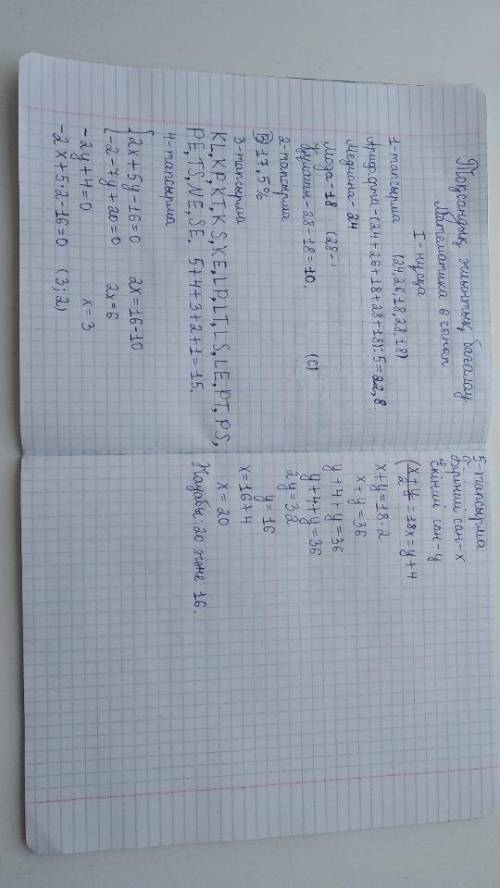 Тоқсандық жиынтық бағалау
Математика 6 сынып
I - нұсқа
1-тапсырма (24,26,18,28,18)
Ариф.орта - (24+26+18+28+18):5=22,8
медиана - 24
мода - 18 (28-
Өріsim - 28-18=10. (C)
2-тапсырма
B) 17,5%
3-тапсырма
KL, KP, KT, KS, KE, LP, LT, LS, LE, PT, PS,
PE, TS, NE, SE. 5+4+3+2+1=15.
4-тапсырма
{2x+5y-16=0 2x=16-10
{-2-7y+20=0 2x=6
-2y+4=0 x=3
-2x+5·2-16=0 (3;2)
5-тапсырма
Бірінші сан-x
Екінші сан-y
(x+y/2=18 x=y+4
x+y=18·2
x+y=36
y+4+y=36
y+4+y=36
2y=32
y=16
x=16+4
x=20
Жауабы: 20 және 16.